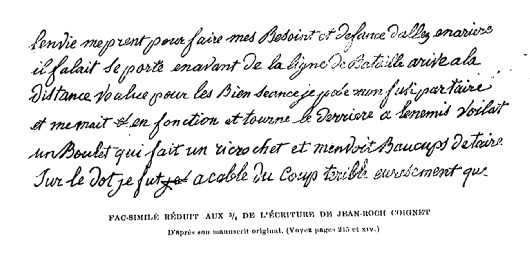 l'envie me prent pour faire mes Besoint et defance dallez enariere
il falait se porte enavant de la ligne de Bataille arive a la
distance voulue pour les Bien seance je pose mon fusi par taire
et me mait en fonction et tourne le derriere a lenemis voilat
un Boulet qui fait un ricochet et mendvoit Baucups dataire
Sur le dot je fut acable du Coup terible euresement que
FAC-SIMILÉ RÉDUIT AUX ¾, DE L'ÉCRITURE DE JEAN-ROCH COIGNET
D'après son manuscrit original. (Voyez pages 215 et xiv.)